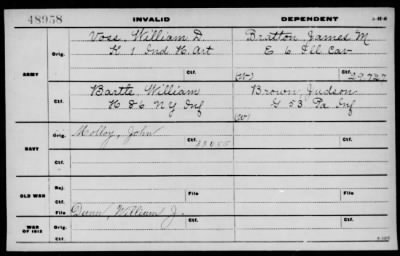 48958 INVALID DEPENDENT
Voss, William D. Bratton, James M
Orig. K 1 Ind H. Art E 6 Ill Cav
ARMY Ctf. (W) Ctf. 29.727
Bartle William Brown, Judson
K 86 N Y Inf G 53 Pa Inf
(W)
Orig. Molloy, John Ctf.
NAVY
Rej. Ctf.
OLD WAR File File
Dunn, William J.
WAR OF 1812 Orig. Ctf. Ctf.